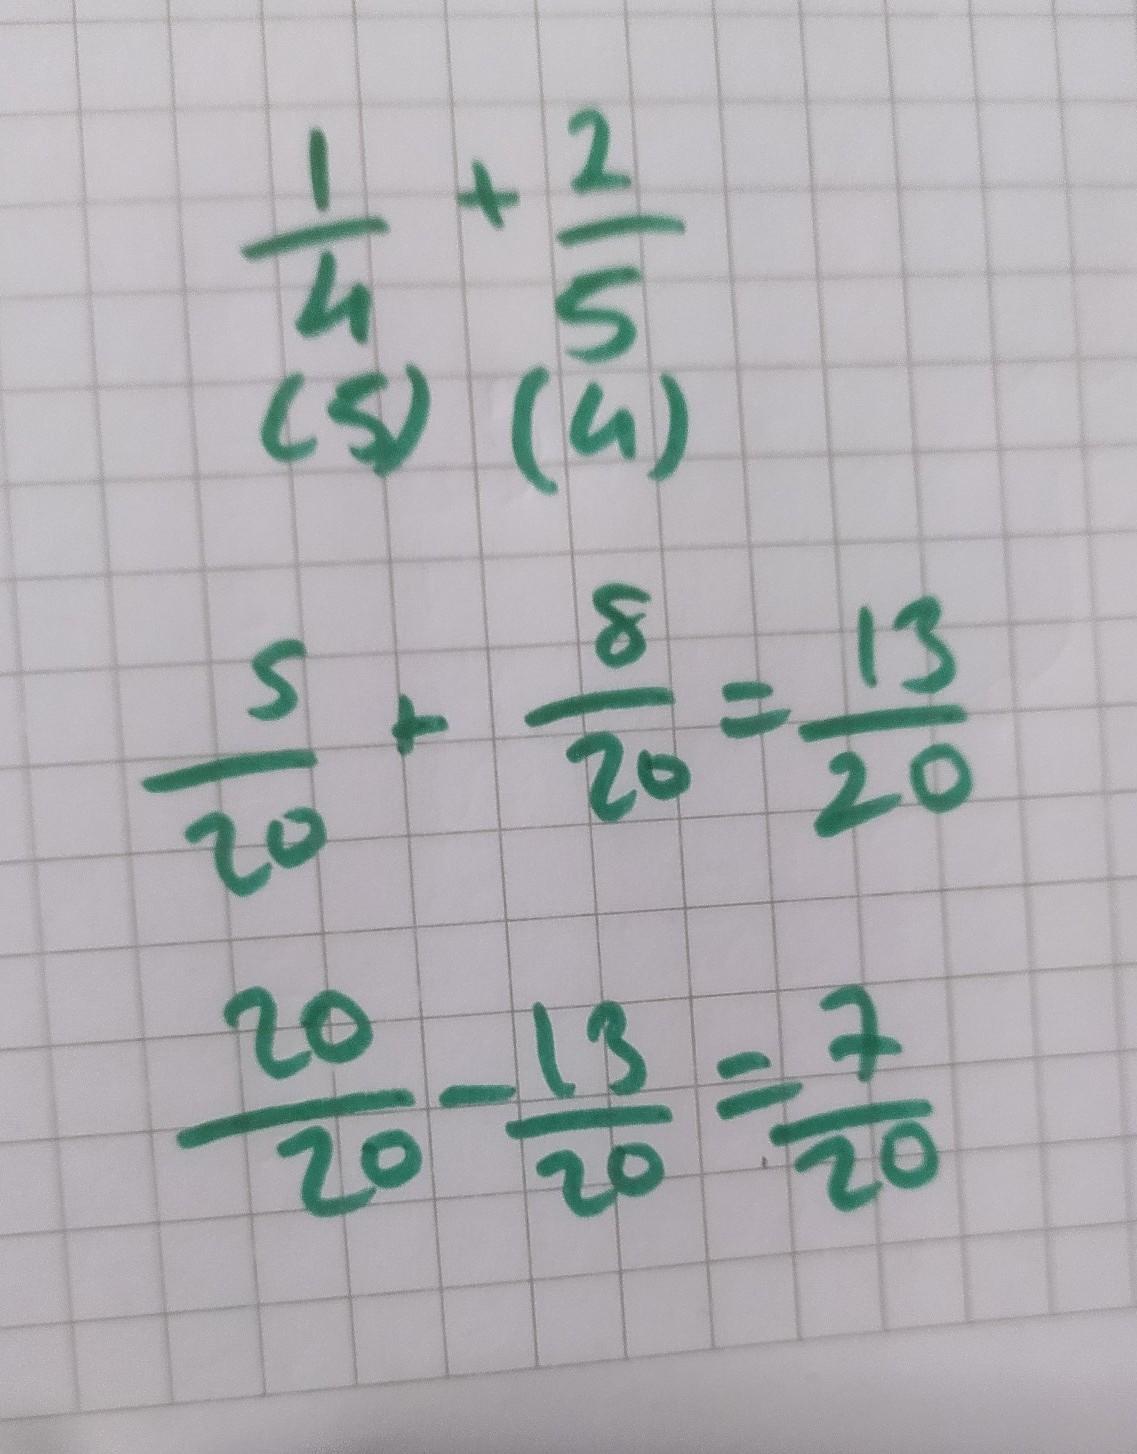 1/4 + 2/5
(5) (4)
5/20 + 8/20 = 13/20
20/20 - 13/20 = 7/20